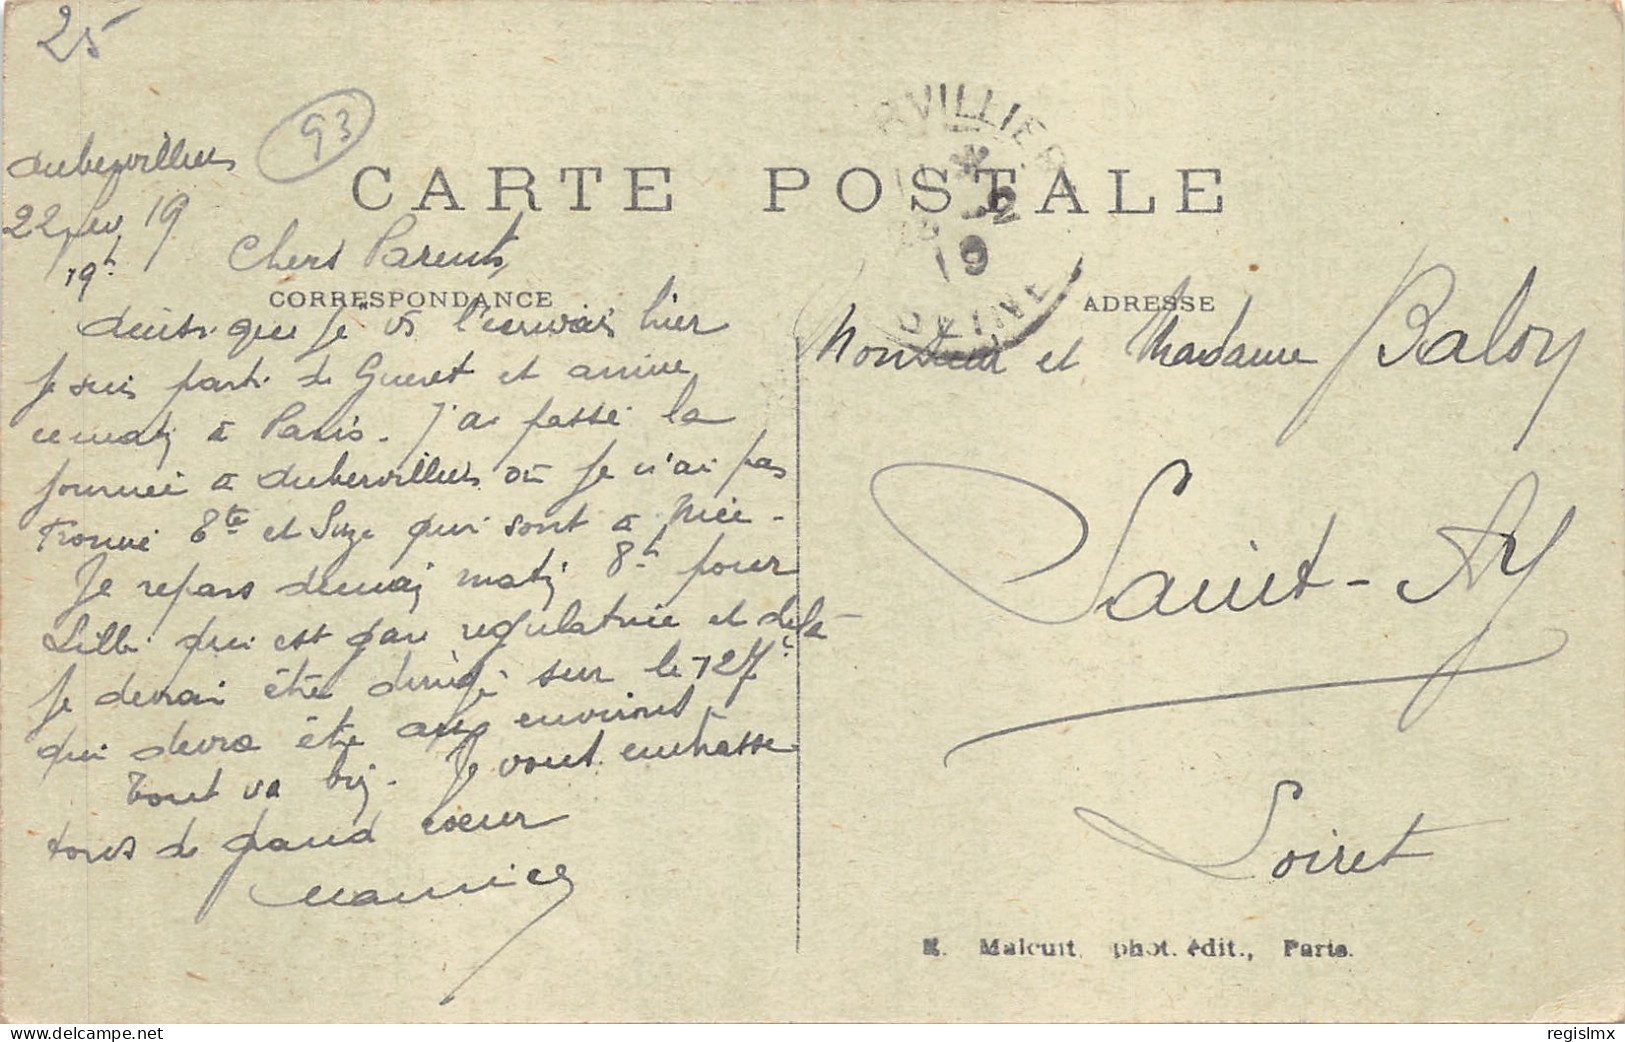 25
93
Aubervilliers
22 fev. 19
19h
CARTE POSTALE
CORRESPONDANCE
Chers Parents,
Ainsi que je vs l'écrivais hier
je suis parti de Gueret et arrivé
ce matin à Paris. J'ai passé la
journée à Aubervilliers où je n'ai pas
trouvé et Suze qui sont à
Je repars demain matin 8h pour
Lille qui est gare régulatrice et de là
je devrai être dirigé sur le 127e
qui devra être aux environs.
Tout va bien. Je vous embrasse
tous de grand coeur
Maurice
RVILLIER
SEINE
ADRESSE
Monsieur et Madame Baloy
Saint-Ay
Loiret
E. Malcuit, phot. édit., Paris.
delcampe.net
regislmx